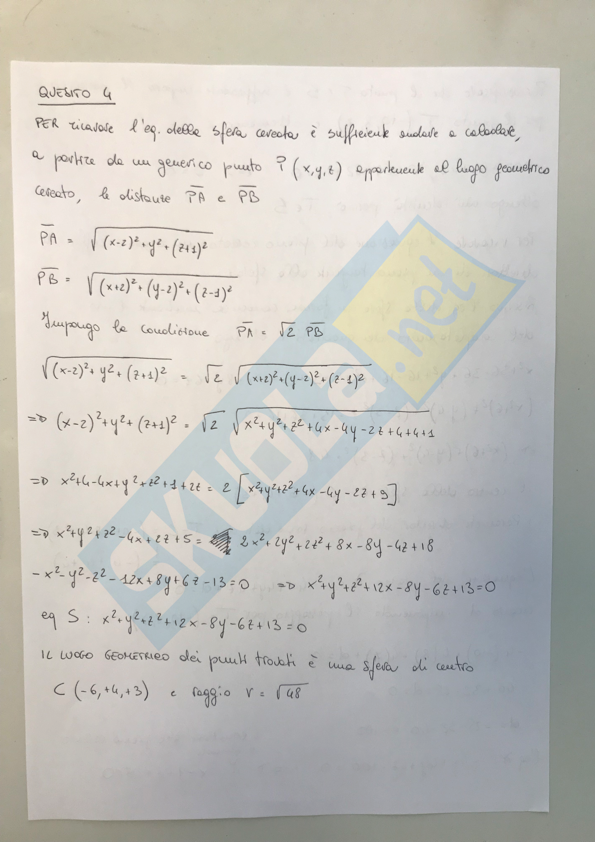 QUESITO 4
PER ricavare l'eq. della sfera cercata è sufficiente andare a calcolare,
a partire da un generico punto P (x,y,z) appartenente al luogo geometrico
cercato, le distanze PA e PB
PA = √(x-2)²+y²+(z+1)²
PB = √(x+2)²+(y-2)²+(z-1)²
Impongo la condizione PA = √2 PB
√(x-2)²+y²+(z+1)² = √2 √(x+2)²+(y-2)²+(z-1)²
=D (x-2)²+y²+(z+1)² = √2 √x²+y²+z²+4x-4y-2z+4+4+1
=D x²+4-4x+y²+z²+1+2z = 2 [x²+y²+z²+4x-4y-2z+9]
=D x²+y²+z²-4x+2z+5 = 2x²+2y²+2z²+8x-8y-4z+18
-x²-y²-z²-12x+8y+6z-13=0 =D x²+y²+z²+12x-8y-6z+13=0
eq S: x²+y²+z²+12x-8y-6z+13=0
IL LUOGO GEOMETRICO dei punti trovati è una sfera di centro
C (-6,+4,+3) e raggio r = √48
SKUOLA.net